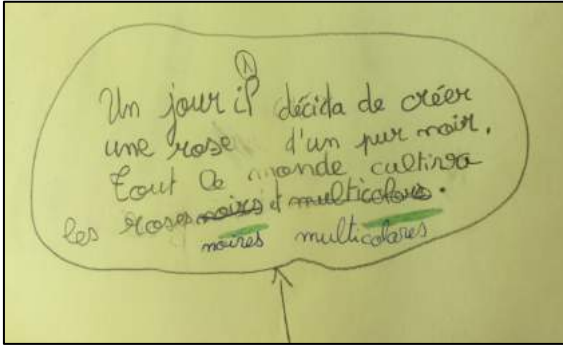 1
Un jour il décida de créer
une rose d'un pur noir.
Tout le monde cultiva
les roses noirs et multicolors.
noires multicolores